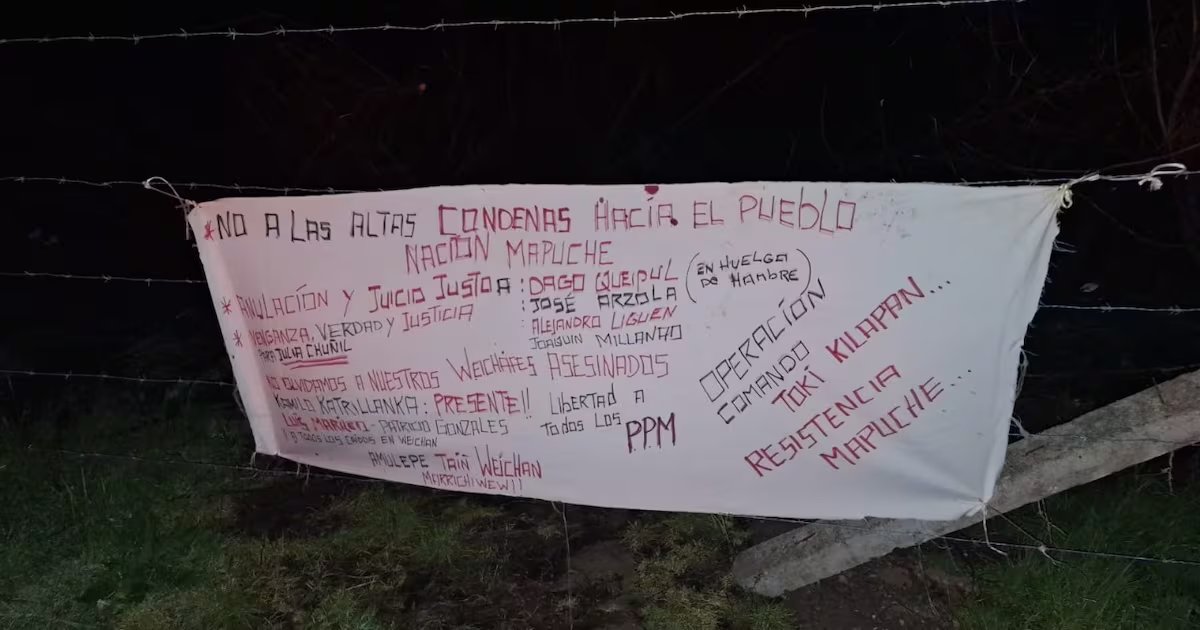 *NO A LAS ALTAS CONDENAS HACÍA EL PUEBLO
NACIÓN MAPUCHE
* ANULACIÓN Y JUICIO JUSTO A : DAGO QUEIPUL (EN HUELGA DE HAMBRE)
: JOSÉ ARZOLA
: ALEJANDRO LIGUEN
JOAQUIN MILLANAO
* VENGANZA, VERDAD Y JUSTICIA
PARA JULIA CHUÑIL
NO OLVIDAMOS A NUESTROS WEICHAFES ASESINADOS
KAMILO KATRILLANKA : PRESENTE!!
LUIS MARILEO - PATRICIO GONZALES
Y A TODOS LOS CAÍDOS EN WEICHAN
LIBERTAD A
TODOS LOS PPM
AMULEPE TAIÑ WEICHAN
MARRICHIWEW!!
OPERACIÓN
COMANDO
TOKI KILAPAN...
RESISTENCIA
MAPUCHE...